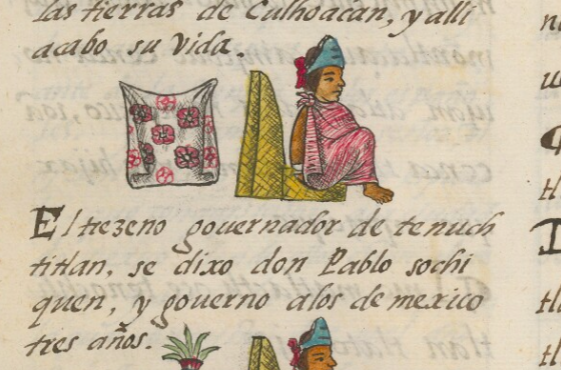 las tierras de Culhoacan, y alli
acabo su vida.
El trezeno gouernador de tenuch
titlan, se dixo don Pablo sochi
quen, y gouerno alos de mexico
tres años.